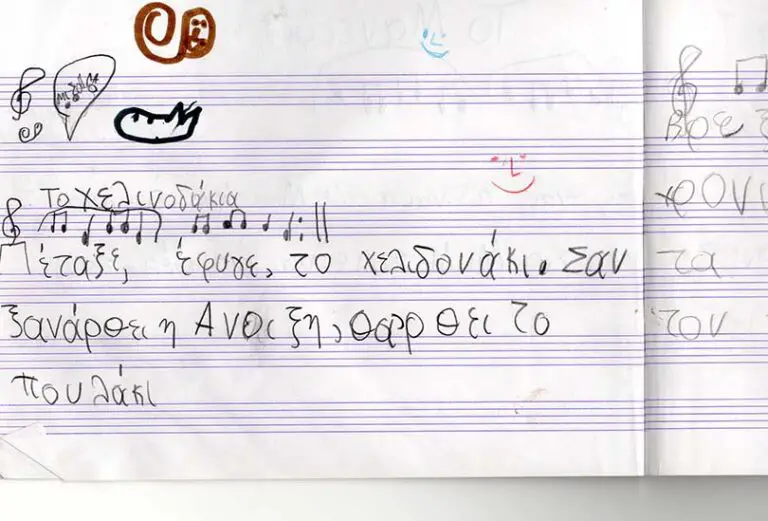 Το χελινοδάκια
έταξε, έφυγε, το χελιδονάκι. Σαν
ξανάρθει η Ανοιξη, θαρθει το
πουλάκι
βρε
τα
τον